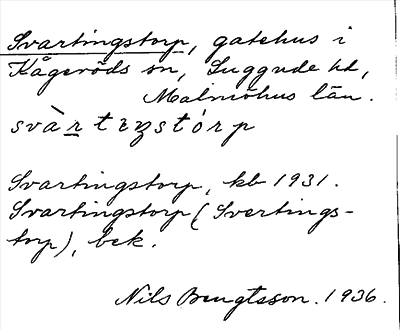 Svartingstorp, gatehus i
Kågeröds sn, Luggude hd,
Malmöhus län.
svàrtɪŋstórp
Svartingstorp, kb 1931.
Svartingstorp (Svertings-
torp), bek.
Nils Bengtsson. 1936.